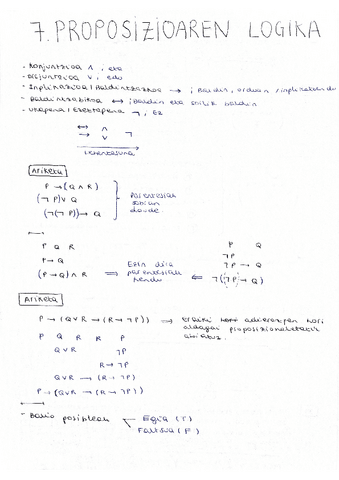 7. PROPOSIZIOAREN LOGIKA
- Konjuntzioa ∧, eta
- Disjuntzioa ∨, edo
- Inplikazioa / Baldintzazkoa → ; Baldin, orduan / inplikatu du
- Baldintzabikoa ↔ ; Baldin eta soilik baldin
- Ukapena / Ezeztapena ¬, Ez
↔ ∧
→ ∨ ¬
Lehentasuna
Ariketa
P → (Q ∧ R)
(¬P) ∨ Q
(¬(¬P)) → Q
Parentesiak
sobran
daude.
P Q R
P → Q
(P → Q) ∧ R
Ezin dira
parentesiak
kendu
P Q
¬P
¬P → Q
¬(¬P → Q)
Ariketa
P → (Q ∨ R → (R → ¬P)) ⟹ eraiki hori adierazpen hori
aldagai proposizionaletatik
abiatuz.
P Q R R P
Q ∨ R ¬P
R → ¬P
Q ∨ R → (R → ¬P)
P → (Q ∨ R → (R → ¬P))
- Balio posibleak
Egia (T)
Faltsua (F)